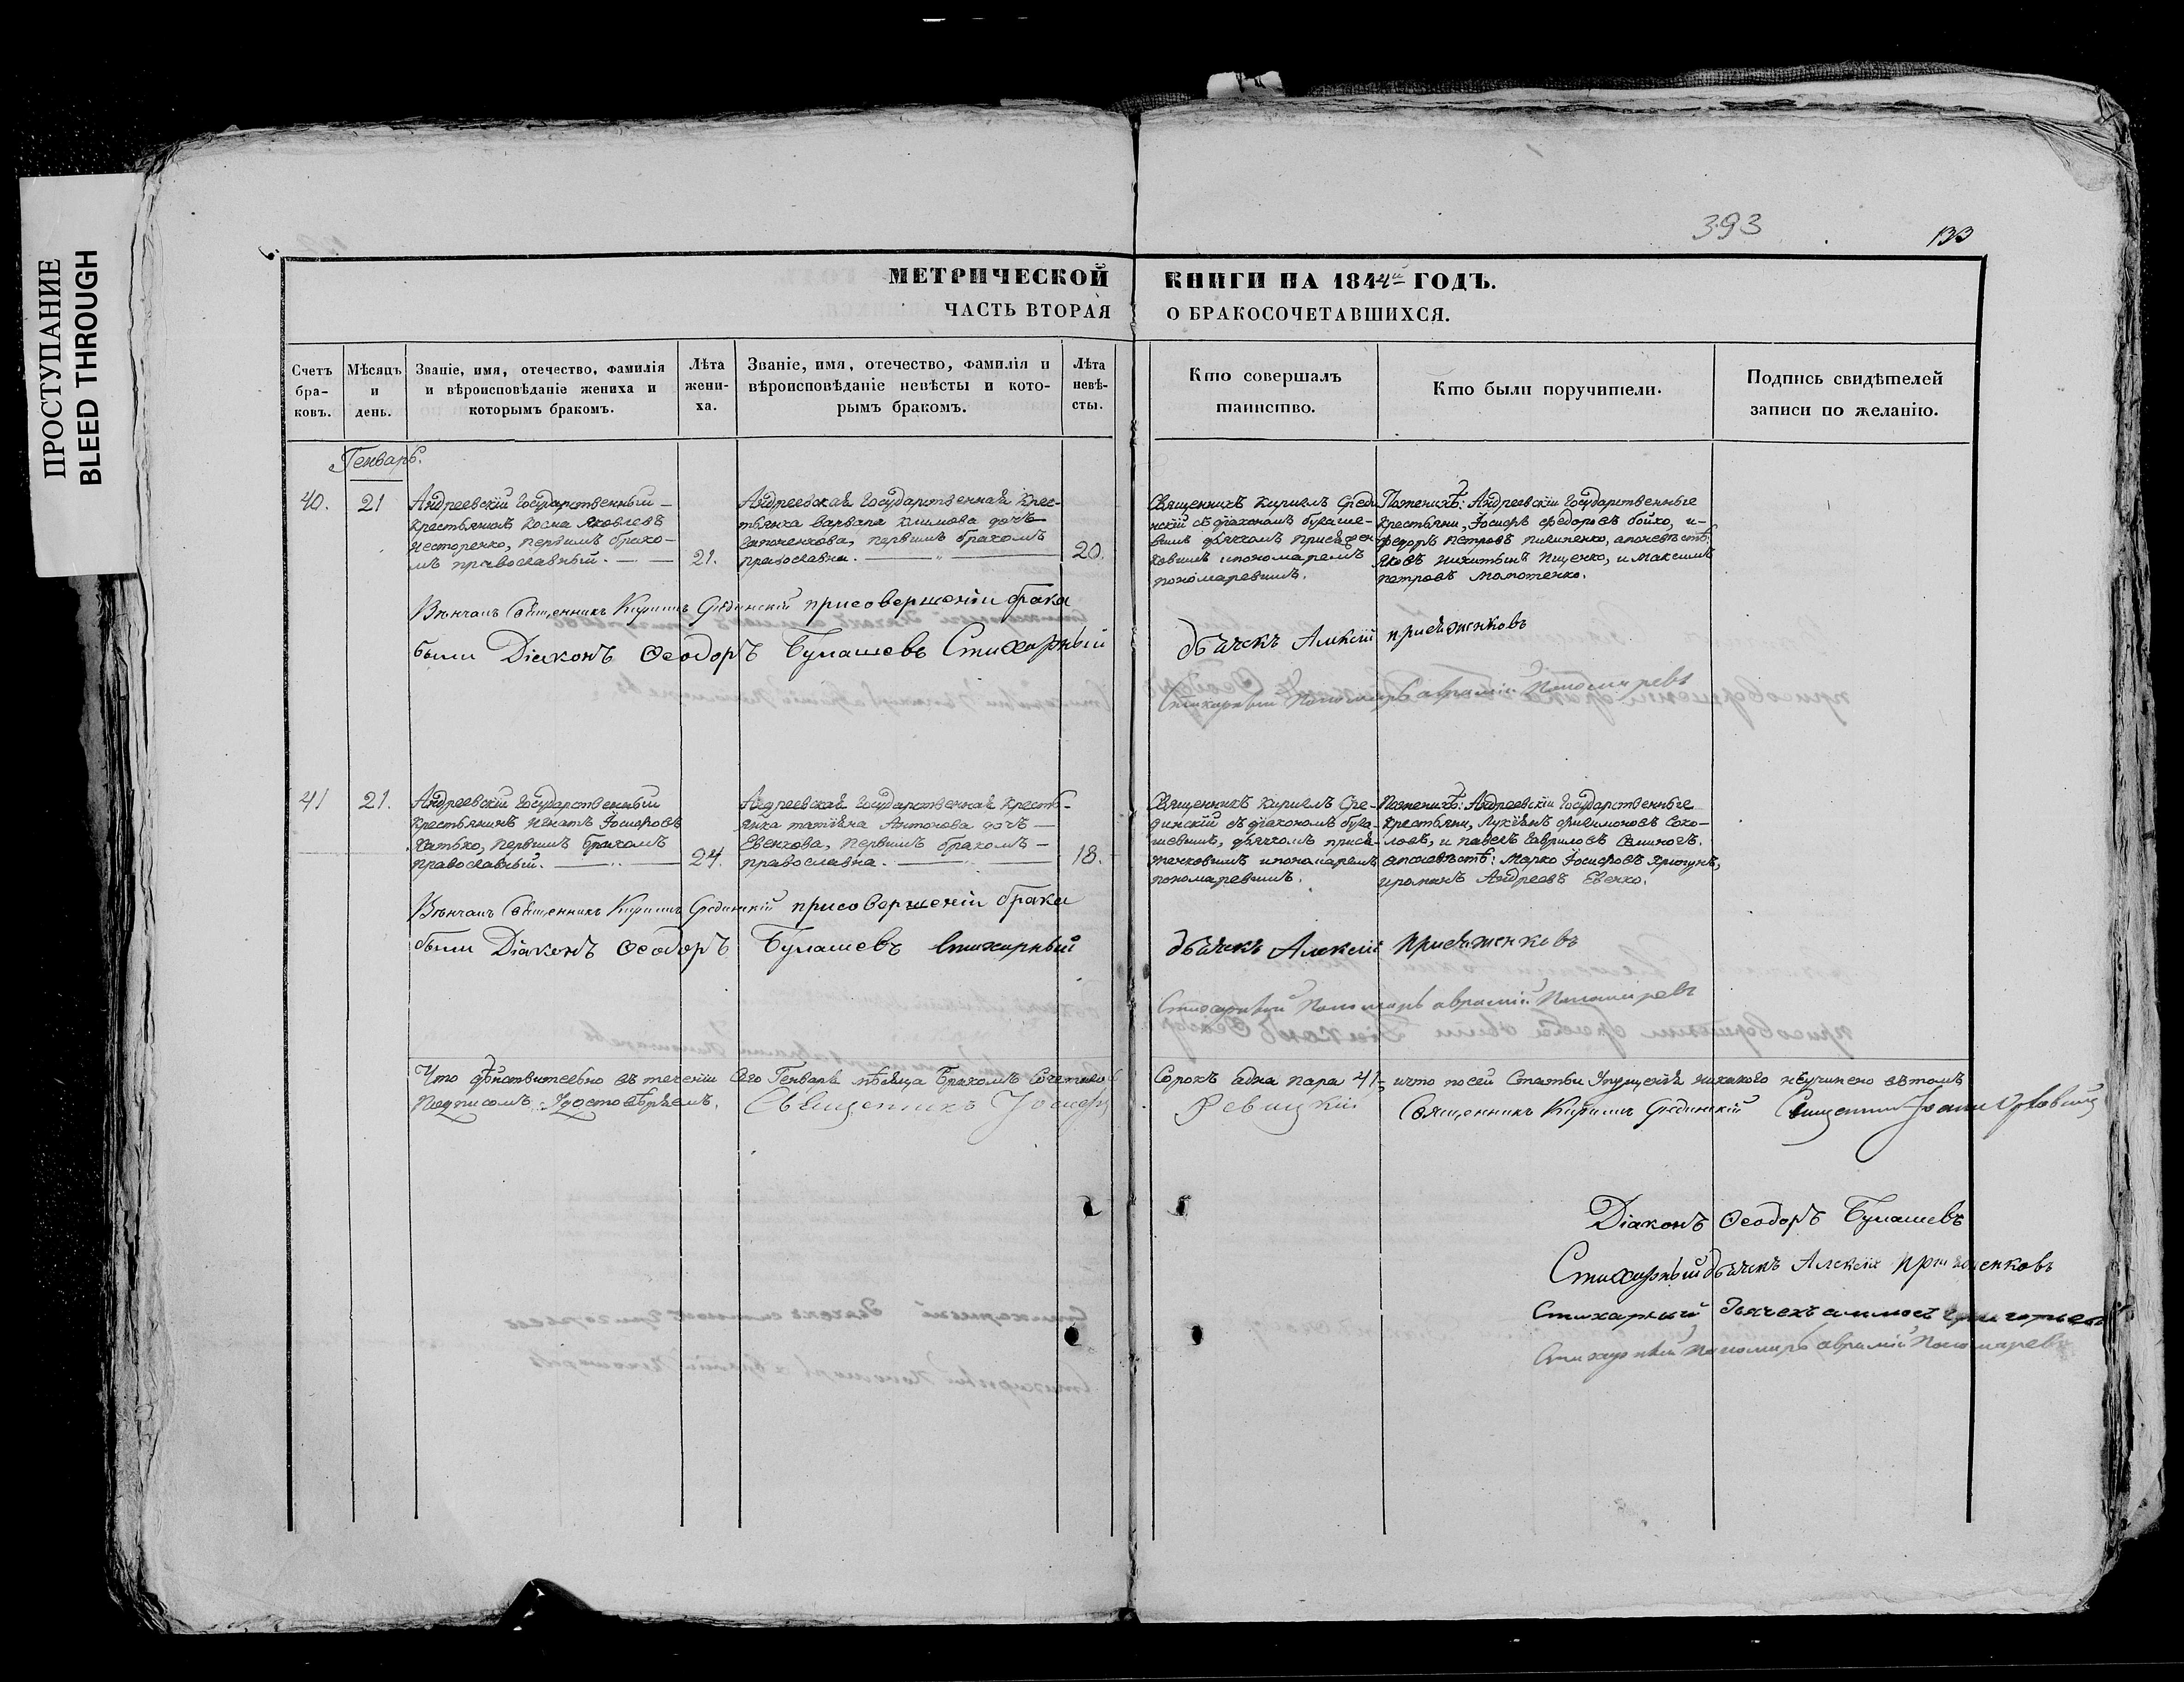 ПРОСТУПАНИЕ
BLEED THROUGH
393
133
МЕТРИЧЕСКОЙ КНИГИ НА 1844й ГОДЪ.
ЧАСТЬ ВТОРАЯ О БРАКОСОЧЕТАВШИХСЯ.
Счетъ бра-ковъ.
Мѣсяцъ и день.
Званіе, имя, отечество, фамилія
и вѣроисповѣданіе жениха и
которымъ бракомъ.
Лѣта жени-ха.
Званіе, имя, отечество, фамилія и
вѣроисповѣданіе невѣсты и кото-
рымъ бракомъ.
Лѣта невѣ-сты.
Кто совершалъ
таинство.
Кто были поручители.
Подпись свидѣтелей
записи по желанію.
Генварь.
40.
21
Андреевскій Государственный
крестьянинъ Косма Яковлевъ
Несторенко, первымъ брако-
мъ православный.
21.
Андреевская Государственная крес-
тьянка Варвара Климова дочь
первымъ бракомъ
православна.
20.
Священникъ Кирилъ Среди
нскій съ діакономъ Булаше-
вымъ дьячкомъ Присяжен
ковымъ и пономаремъ
Пономаревымъ.
По женихѣ: Андреевскіи Государственные
крестьяни, Іосифъ Федоровъ Бойко, и
Федоръ Петровъ Пилипенко, а по невѣстѣ:
Яковъ Никитинъ Ищенко, и Максимъ
Петровъ
Вѣнчалъ Священникъ Кирилъ Срединскій при совершеніи брака
были Діаконъ Ѳеодоръ Булашевъ Стихарный дьячекъ Алексій Присяженковъ
Стихарный Пономарь Аврамій Пономаревъ
41
21.
Андреевскій Государственный
крестьянинъ Игнатъ Іосифовъ
Хатько, первымъ бракомъ
православный.
24.
Андреевская Государственная кресть-
янка Татіяна Антонова дочь
Евенкова, первымъ бракомъ
православна.
18.
Священникъ Кирилъ Сре-
динскій съ діакономъ Була-
шевымъ, дьячкомъ Прися-
женковымъ и пономаремъ
Пономаревымъ.
По женихѣ: Андреевскіи Государственные
крестьяни, Лукіянъ Филимоновъ Соко-
ловъ, и Павелъ Гавриловъ
а по невѣстѣ: Марко Іосифовъ
и Романъ Андреевъ Евенко.
Вѣнчалъ Священникъ Кирилъ Срединскій при совершеніи брака
были Діаконъ Ѳеодоръ Булашевъ Стихарный дьячекъ Алексій Присяженковъ
Стихарный Пономарь Аврамій Пономаревъ
Что дѣйствительно въ теченіи сего Генваря мѣсяца Бракомъ Сочетано Сорокъ одна пара 41, и что по сей Статьи Упущенія никакого не учинено въ томъ
Подписомъ Удостовѣряемъ. Священникъ Іосифъ Ревицкій Священникъ Кирилъ Срединскій Священникъ Іоаннъ
Діаконъ Ѳеодоръ Булашевъ
Стихарный дьячекъ Алексій Присяженковъ
Стихарный дьячекъ
Стихарный Пономарь Аврамій Пономаревъ